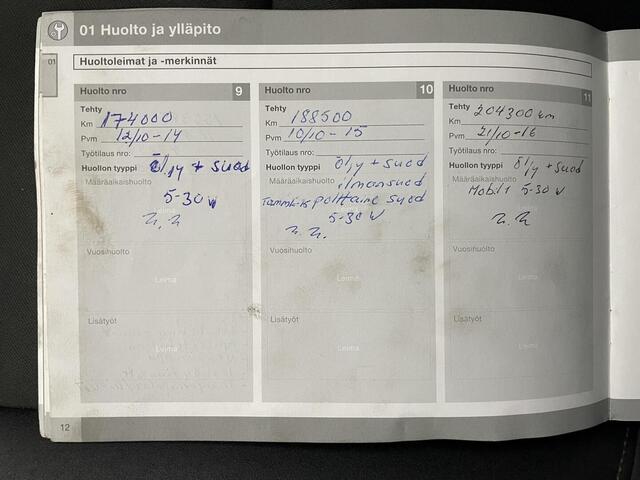 01 Huolto ja ylläpito
01
Huoltoleimat ja -merkinnät
Huolto nro 9
Tehty
Km 174000
Pvm 12/10-14
Työtilaus nro:
Huollon tyyppi öljy + suod
Määräaikaishuolto
5-30 W
Vuosihuolto
Leima
Lisätyöt
Leima
Huolto nro 10
Tehty
Km 188500
Pvm 10/10-15
Työtilaus nro:
Huollon tyyppi öljy + suod
Määräaikaishuolto ilmansuod
polttaine suod
5-30 W
Vuosihuolto
Leima
Lisätyöt
Leima
Huolto nro 11
Tehty
Km 204300 km
Pvm 21/10-16
Työtilaus nro:
Huollon tyyppi öljy + suod
Määräaikaishuolto
Mobil 1 5-30 W
Vuosihuolto
Leima
Lisätyöt
Leima
12